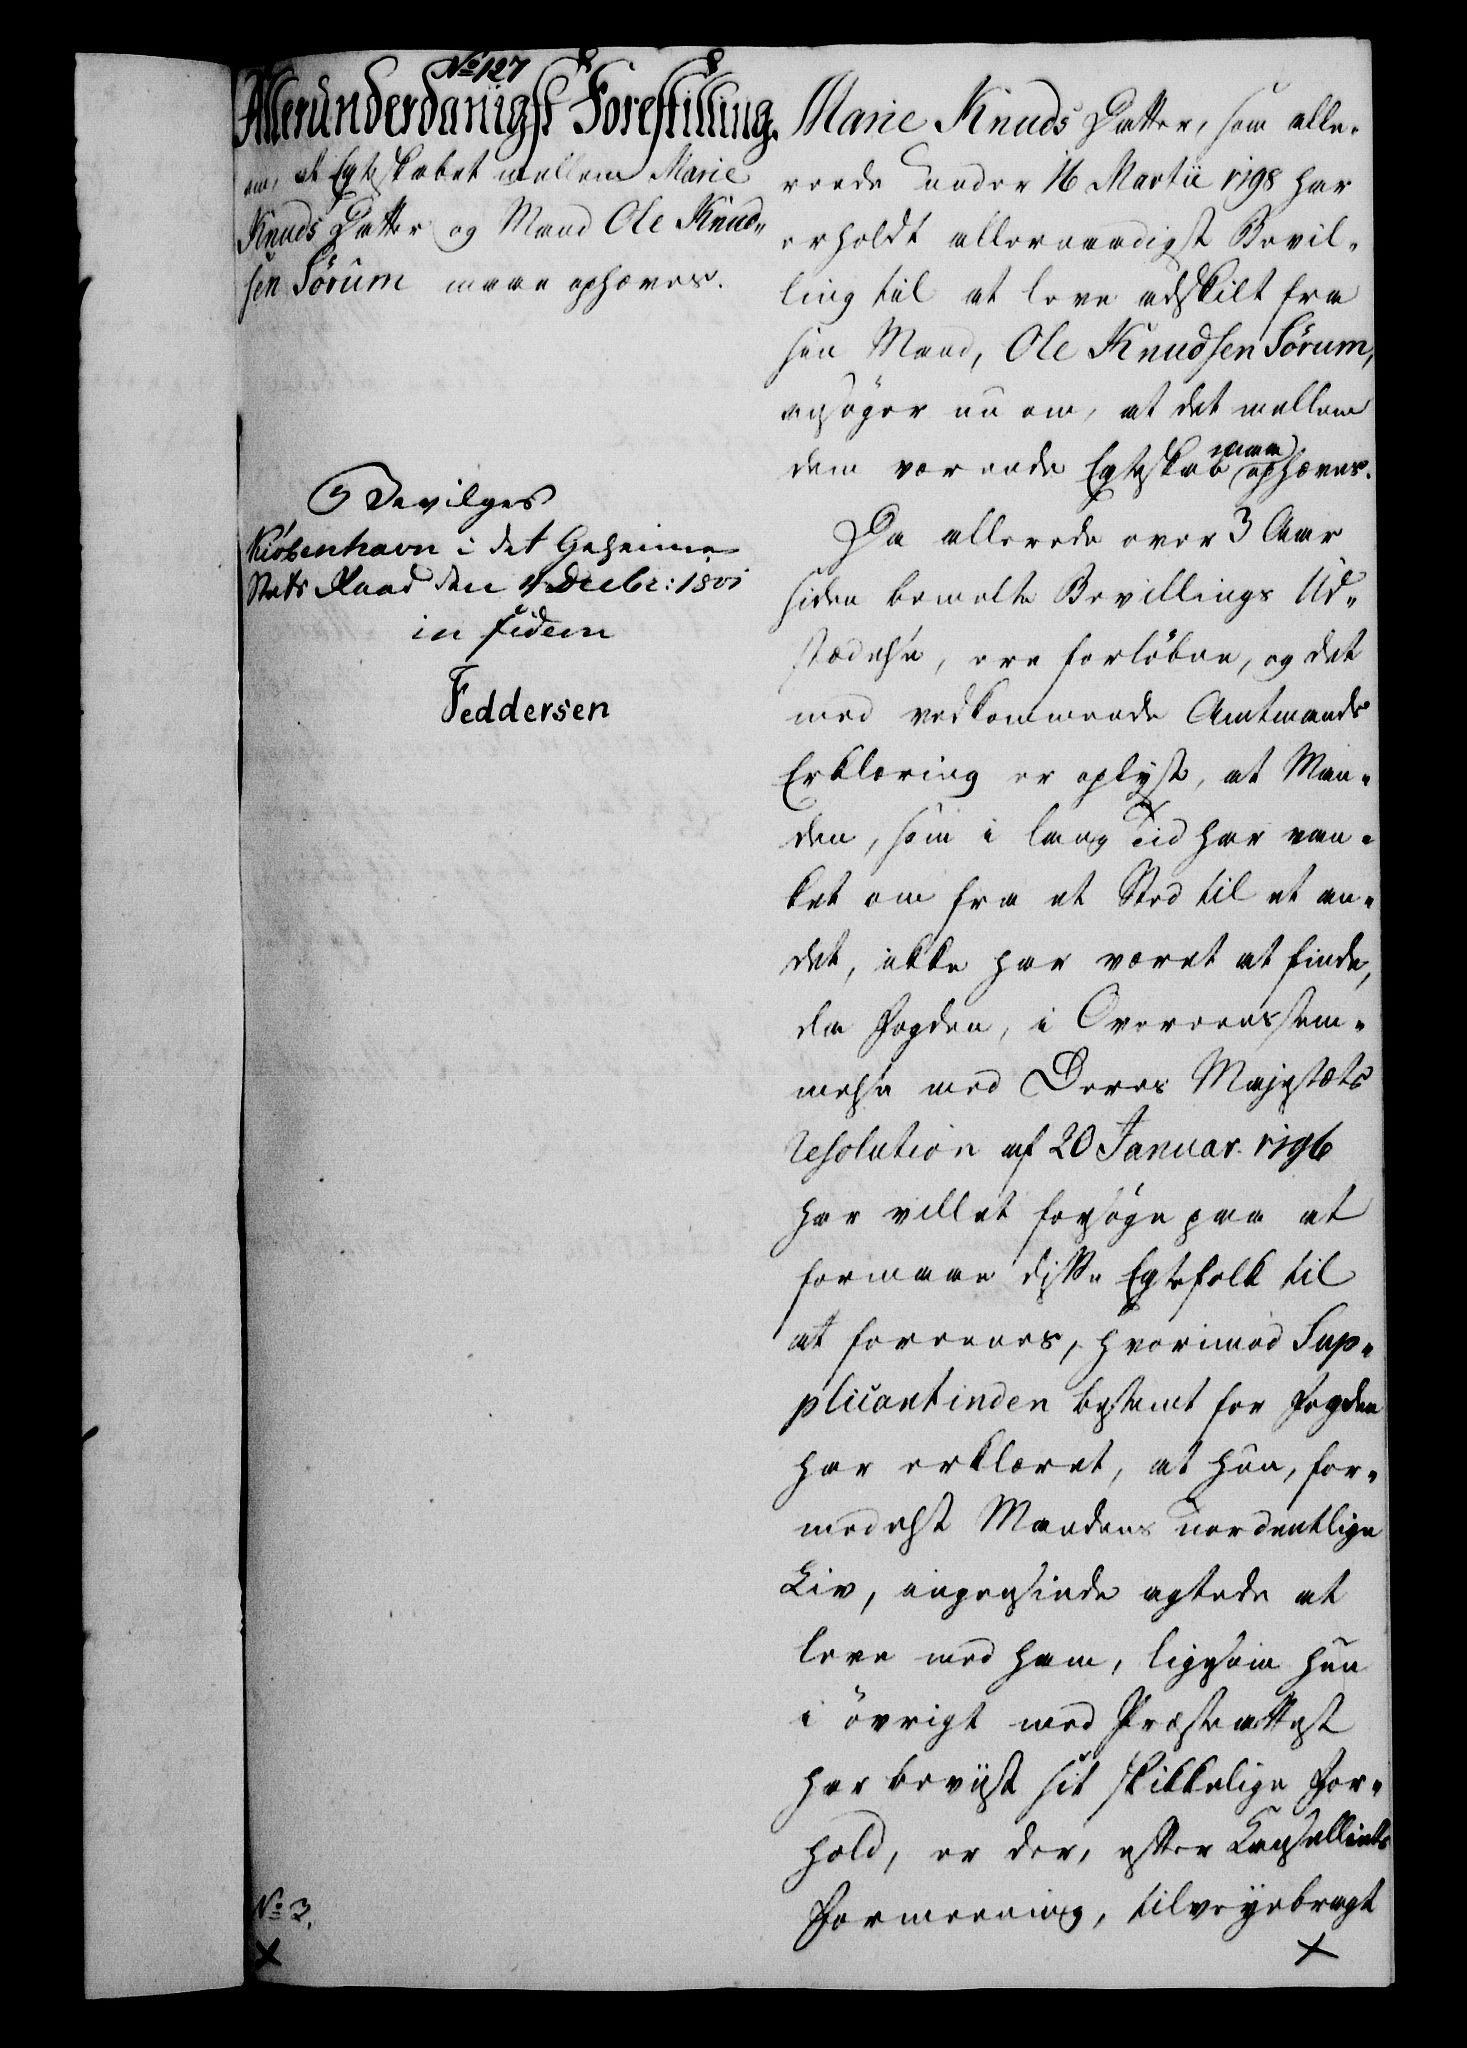 No 127
Allerunderdanigst Forestilling.
om, at Egteskabet mellem Marie
Knuds Datter og Mand Ole Knud-
sen Sörum maae ophæves.
Bevilges
Kiöbenhavn i det Geheime
Stats Raad den 4 Decbr: 1801
in fidem
Feddersen
No 3.
Marie Knuds Datter, som alle-
reede under 16 Martii 1798 har
erholdt allernaadigst Bevil-
ling til at leve adskilt fra
sin Mand, Ole Knudsen Sörum,
ansöger nu om, at det mellem
dem værende Egteskab maae ophæves.
Da allerede over 3 Aar
siden bemelte Bevillings Ud-
stædelse, ere forløbne, og det
med vedkommende Amtmands
Erklæring er oplyst, at Man-
den, som i lang Tid har van-
ket om fra et Sted til et an-
det, ikke har været at finde,
da Fogden, i Overeensstem-
melse med Deres Majestæts
Resolution af 20 Januar. 1796
har villet forsöge paa at
formaae disse Egtefolk til
at forenes, hvorimod Sup-
plicantinden bestemt for Fogden
har erklæret, at hun, for-
medelst Mandens uordentlige
Liv, ingensinde agtede at
leve med ham, ligesom hun
i övrigt med Præsteattest
har beviist sit skikkelige For-
hold, er der, efter Cancelliets
Formeening, tilveyebragt